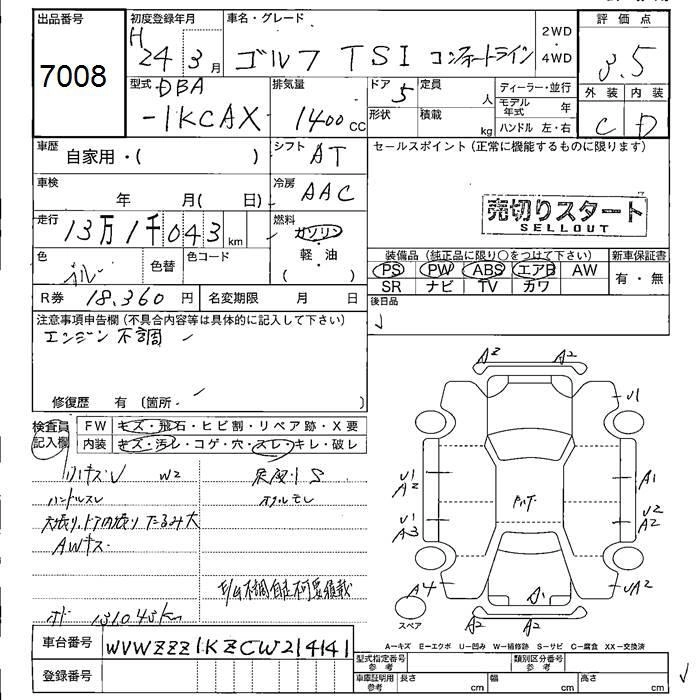 出品番号
7008
初度登録年月
H
24年3月
車名・グレード
ゴルフ TSI コンフォートライン
2WD
・
4WD
評価点
3.5
型式
DBA
-1KCAX
排気量
1400cc
ドア
5
定員
人
形状
積載
kg
ディーラー・並行
モデル年式 年
ハンドル 左・右
外装 内装
C D
車歴
自家用・( )
シフト
AT
セールスポイント(正常に機能するものに限ります)
車検
年 月( 日)
冷房
AAC
売切りスタート
SELLOUT
走行
13万1千043km
燃料
ガソリン
・
軽・油
( )
色
色替
色コード
装備品(純正品に限り〇をつけて下さい)
PS PW ABS エアB AW
SR ナビ TV カワ
新車保証書
有・無
R券 18,360円
名変期限 月 日
後日品
注意事項申告欄(不具合内容等は具体的に記入して下さい)
エンジン不調
修復歴 有(箇所・ )
検査員
記入欄
FW キズ・飛石・ヒビ割・リペア跡・X要
内装 キズ・汚レ・コゲ・穴・スレ・キレ・破レ
W2
ハンドルスレ
天張り、ドア内張りたるみ大
AWキズ
オイルモレ
E/G不調自走不可要積載
131043km
A2 A2
U1
U1
A2
A1
U1
A3
U2
A2
A4
A1
UA2
A2 A2
スペア
A-キズ E-エクボ U-凹み W-補修跡 S-サビ C-腐食 XX-交換済
車台番号
WVWZZZ1KZCW214141
登録番号
型式指定番号
参考
類別区分番号
参考
車庫証明用
参考
長さ cm
幅 cm
高さ cm